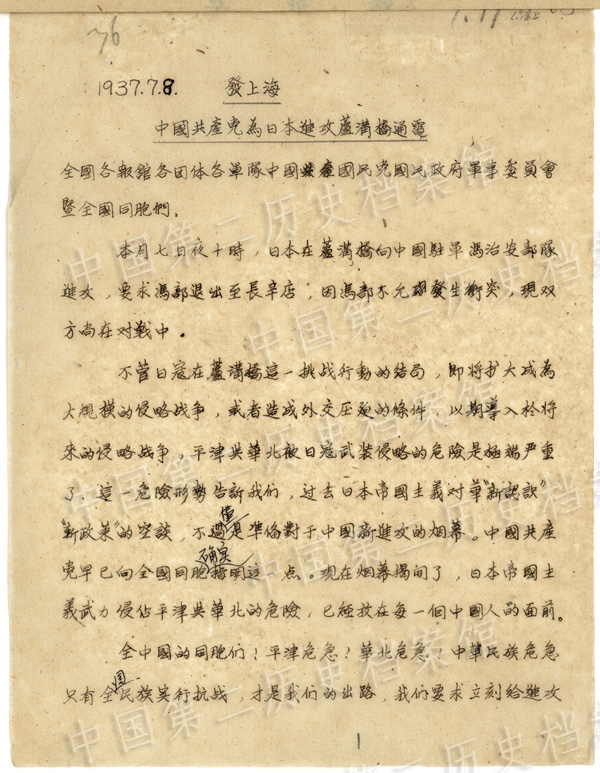 76
1937.7.8. 發上海
中國共產党為日本進攻蘆溝橋通電
全國各報館各团体各軍隊中國國民党國民政府軍事委員會
暨全國同胞們.
本月七日夜十時，日本在蘆溝橋向中國駐軍馮治安部隊
進攻，要求馮部退出至長辛店，因馮部不允發生衝突，現双
方尚在对戰中．
不管日寇在蘆溝橋這一挑战行動的结局，即将扩大成為
大規模的侵略战争，或者造成外交压迫的條件，以期導入於将
來的侵略战争，平津與華北被日寇武装侵略的危險是極端严重
了．這一危險形勢告訴我们，过去日本帝國主義对華“新認識”
“新政策”的空談，不過是準偹對于中國新進攻的烟幕。中國共產
党早已向全國同胞指明這一点。現在烟幕揭開了，日本帝國主
義武力侵佔平津與華北的危險，已經放在每一個中國人的面前。
全中國的同胞们！平津危急！華北危急！中華民族危急
只有全国民族实行抗战，才是我们的出路，我们要求立刻给進攻
1
中国第一历史档案馆